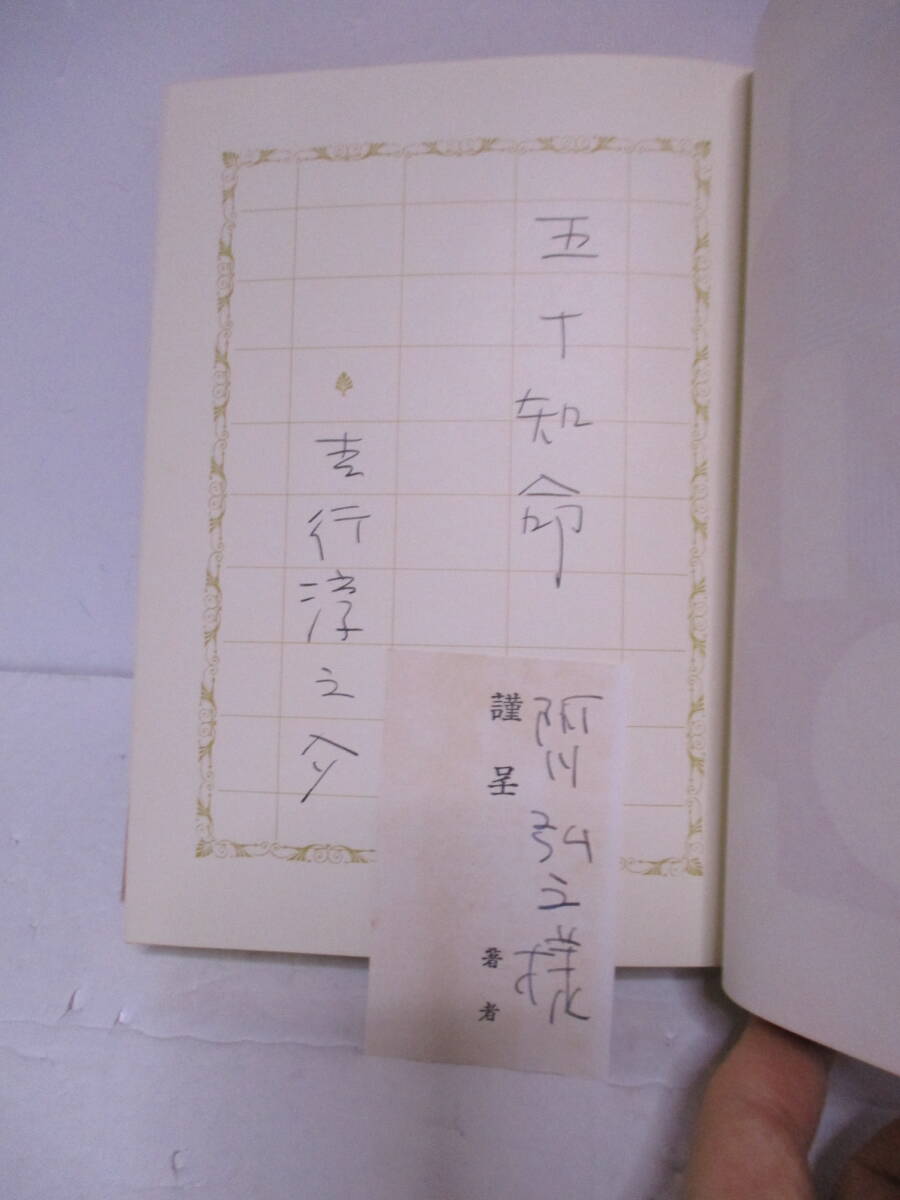 五十知命
吉行淳之介
阿川弘之様
謹呈
著者